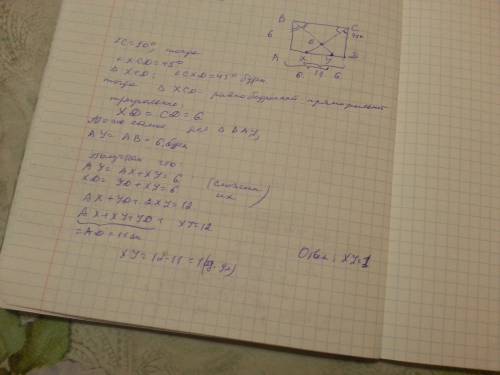 B C
6 45°
O
A X Y D
6 11 6
∠C=90°, тогда
∠XCD=45°
Δ XCD: ∠CXD=45° буди
тогда Δ XCD равнобедренный прямоугольный
треугольник:
XD=CD=6.
То же самое для Δ BAY,
AY=AB=6
Получаем что:
AY=AX+XY=6
XD=YD+XY=6 (сложим их)
AX+YD+2XY=12
AX+XY+YD+ XY=12
=AD=11
XY=12-11=1
Ответ: XY=1